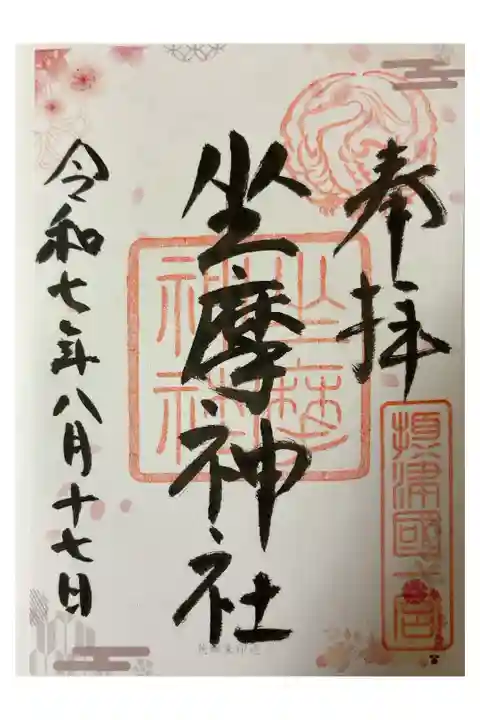 奉拝
攝津國一宮
坐摩神社
坐摩神社
令和七年八月十七日